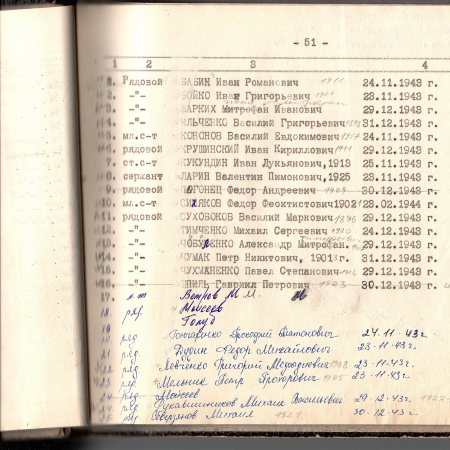 - 51 -
1 2 3 4
1. Рядовой БАБИН Иван Романович 1911 24.11.1943 г.
2. -"- БОЙКО Иван Григорьевич 23.11.1943 г.
3. -"- ЖАРКИХ Митрофан Иванович 29.12.1943 г.
4. -"- ИЛЬЧЕНКО Василий Григорьевич 31.12.1943 г.
5. мл.с-т КОНОНОВ Василий Евдокимович 24.11.1943 г.
6. рядовой КРУШИНСКИЙ Иван Кириллович 1911 29.12.1943 г.
7. ст.с-т КУКУНДИН Иван Лукьянович,1913 25.11.1943 г.
8. сержант ЛАРИН Валентин Пимонович,1925 23.11.1943 г.
9. рядовой ПОГОНЕЦ Федор Андреевич 1904 30.12.1943 г.
10. мл.с-т Федор Феоктистович 1902 23.02.1944 г.
11. рядовой СУХОБОКОВ Василий Маркович 1896 29.12.1943 г.
12. -"- ТИМЧЕНКО Михаил Сергеевич 24.12.1943 г.
13. -"- Александр Митрофан. 29.12.1943 г.
14. -"- ЧУМАК Петр Никитович, 1901 31.12.1943 г.
15. -"- ЧУХМАНЕНКО Павел Степанович 29.12.1943 г.
16. -"- ШПИЛЬ Гавриил Петрович 1903 30.12.1943 г.
17. Ветров М. М.
18. ряд. Моисеев
19. Голуб
20. ряд Гончаренко Платонович 24.11.43г
21 ряд Дудин Федор Михайлович 23.11.43г.
22 ряд Левченко Григорий 23.11.43г
23 ряд Мельник Петр 1905 23.11.43г.
24 ряд Моисеев
Рукавишников Михаил Васильевич 29.12.43г
ряд Северьянов Михаил 1921 30.12.43г